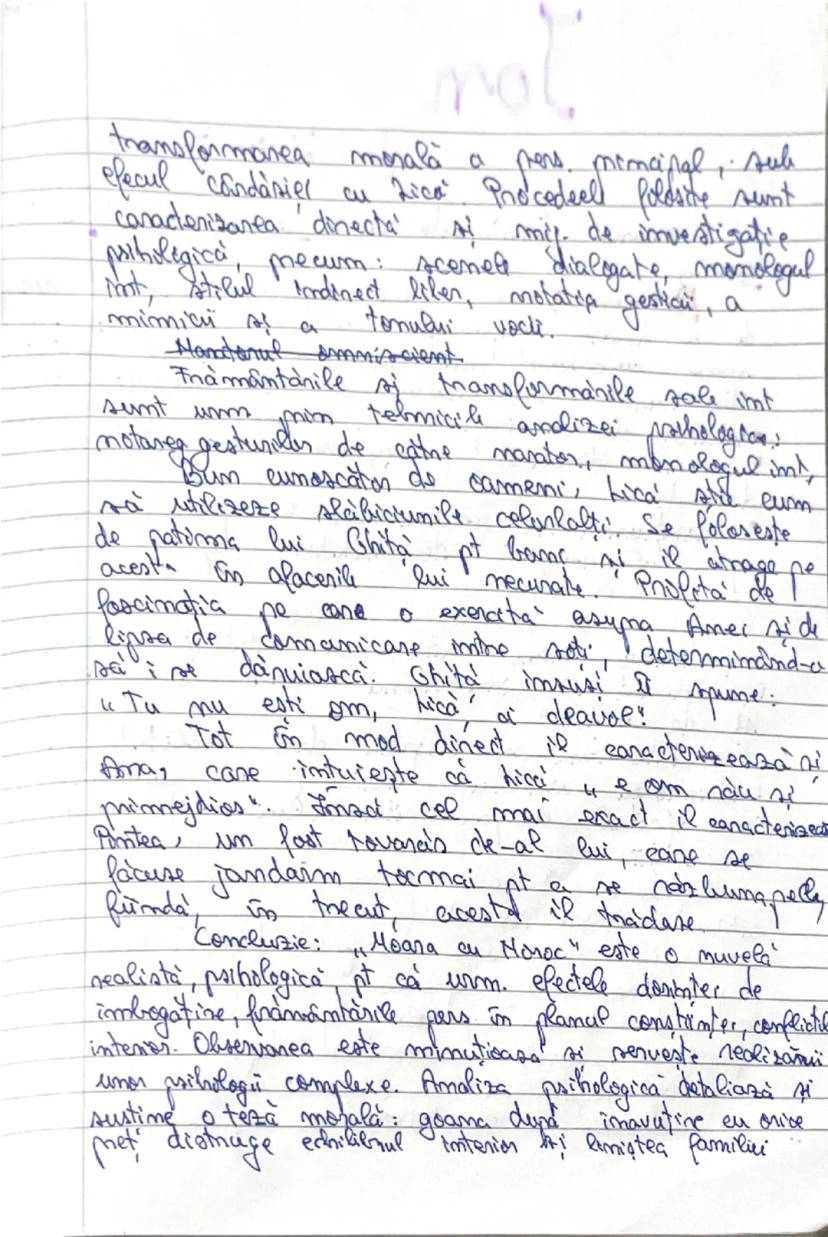 Ion
transformarea morală a pers. principal, sub
efecul cârdăriei cu Lică. Procedeel folosite sunt
caracterizarea directă și mij. de investigație
psihologică, precum: scenele dialogate, monologul
int, stilul indirect liber, notația gesticii, a
mimicii și a tonului vocii.
Naratorul omniscient
Frământările și transformările sale int
sunt urm prin tehnicile analizei psihologice:
notarea gesturilor de către narator, monologul int,
Bun cunoscător de oameni, Lică știe cum
să utilizeze slăbiciunile celorlalți. Se folosește
de patima lui Ghiță pt bani și îl atrage pe
acesta în afacerile lui necurate. Profită de
fascinația pe care o exercită asupra Anei și de
lipsa de comunicare între soți, determinând-o
să i se dăruiască. Ghiță însuși îi spune:
"Tu nu ești om, Lică, ci deavol".
Tot în mod direct îl caracterizează și
Ana, care intuiește că Lică "e om rău și
primejdios". Însă cel mai exact îl caracterizează
Pintea, un fost tovarăș de-al lui, care se
făcuse jandarm tocmai pt a se răzbuna pe el,
fiindcă, în trecut, acesta îl trădase.
Concluzie: "Moara cu Noroc" este o nuvelă
realistă, psihologică, pt că urm. efectele dorinței de
imbogățire, frământările pers. în planul conștiinței, conflictul
interior. Observarea este minuțioasă și servește realizării
unor psihologii complexe. Analiza psihologică detaliază și
susține o teză morală: goana după înavuțire cu orice
preț, distruge echilibrul interior și liniștea familiei